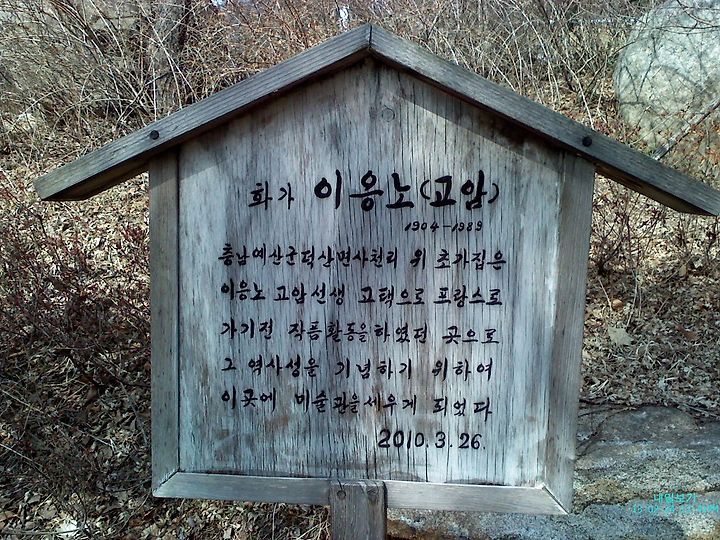 화가 이응노(고암)
1904-1989
충남예산군덕산면사천리 위 초가집은
이응노 고암선생 고택으로 프랑스로
가기전 작품활동을하였던 곳으로
그 역사성을 기념하기 위하여
이곳에 미술관을세우게 되었다
2010.3.26.
내일보기